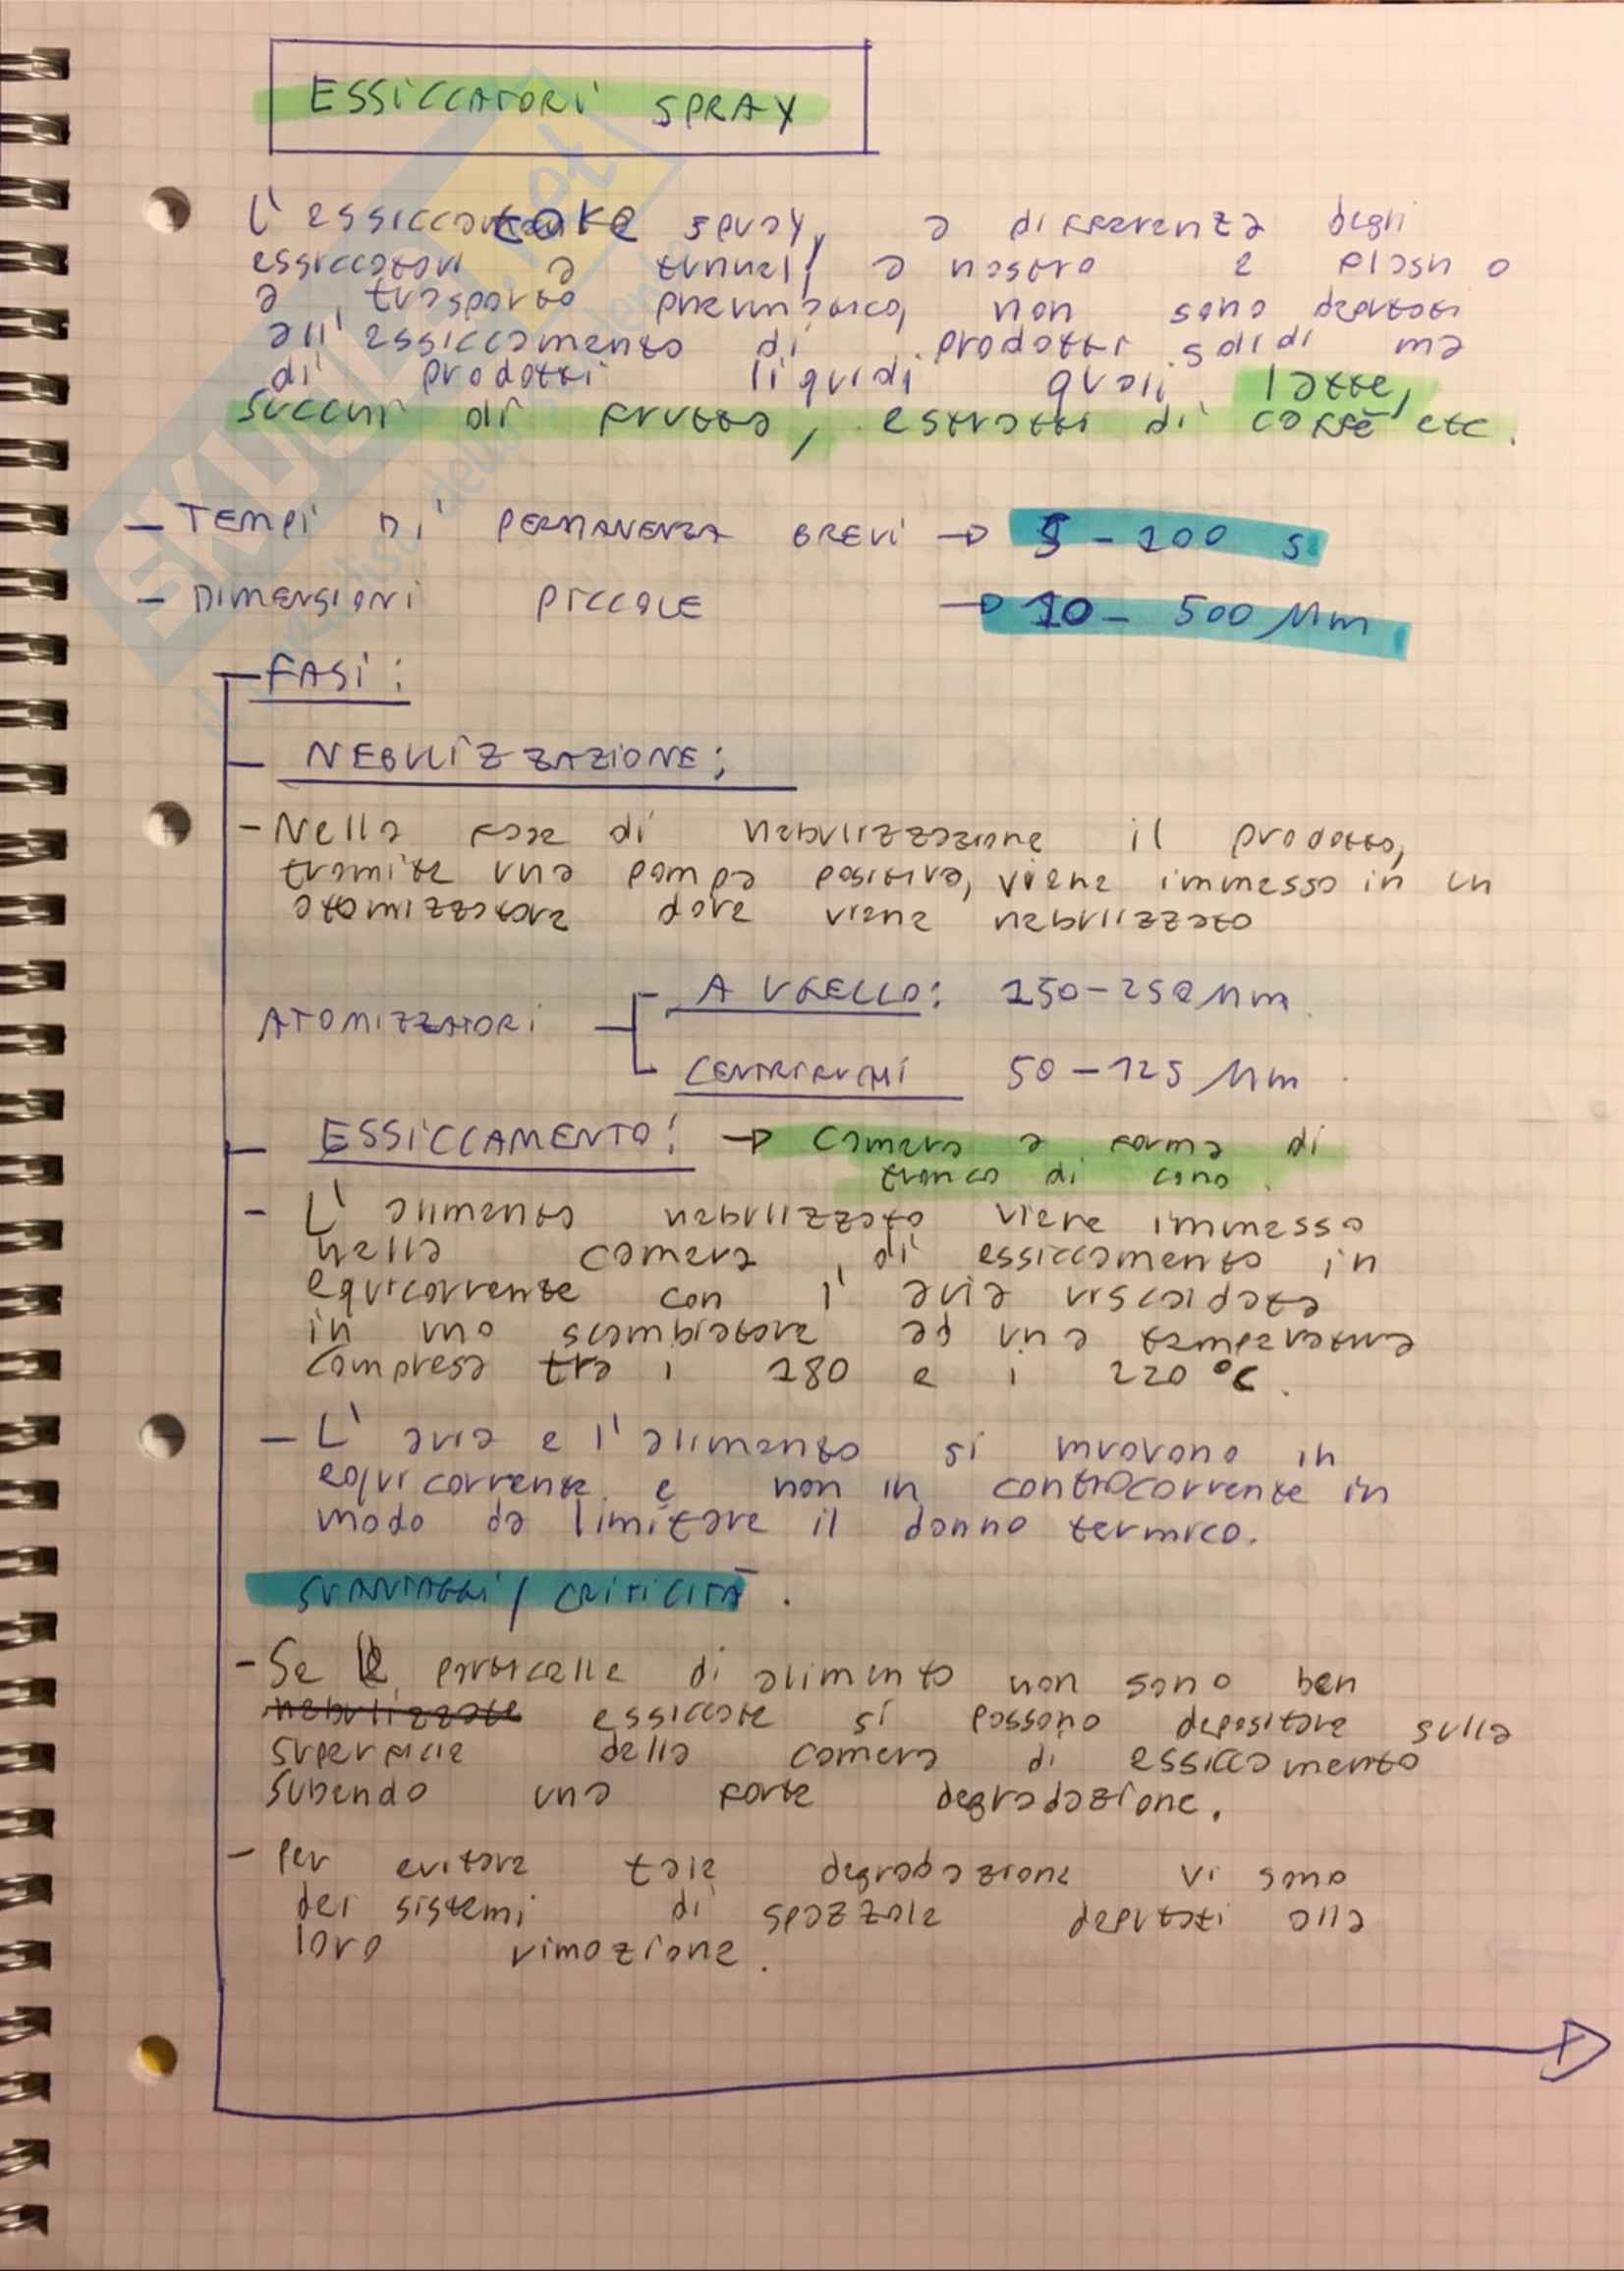 ESSICCATORI SPRAY
L'essiccatore spray, a differenza degli
essiccatori a tunnel, a nastro e flash o
a trasporto pneumatico, non sono deputati
all'essiccamento di prodotti solidi ma
di prodotti liquidi quali latte,
succhi di frutta, estratti di caffè etc.
- TEMPI DI PERMANENZA BREVI → 5 - 100 s
- DIMENSIONI PICCOLE → 10 - 500 µm
FASI:
- NEBULIZZAZIONE:
- Nella fase di nebulizzazione il prodotto,
tramite una pompa positiva, viene immesso in un
atomizzatore dove viene nebulizzato
ATOMIZZATORI
A UGELLO: 150-250 µm
CENTRIFUGHI 50-125 µm
- ESSICCAMENTO: → Camera a forma di
tronco di cono.
- L'alimento nebulizzato viene immesso
nella camera di essiccamento in
equicorrente con l'aria riscaldata
in uno scambiatore ad una temperatura
compresa tra i 180 e i 220 °C.
- L'aria e l'alimento si muovono in
equicorrente e non in controcorrente in
modo da limitare il danno termico.
SVANTAGGI / CRITICITÀ.
- Se le particelle di alimento non sono ben
nebulizzate essiccate si possono depositare sulla
superficie della camera di essiccamento
subendo una forte degradazione.
- Per evitare tale degradazione vi sono
dei sistemi di spazzole deputati alla
loro rimozione.